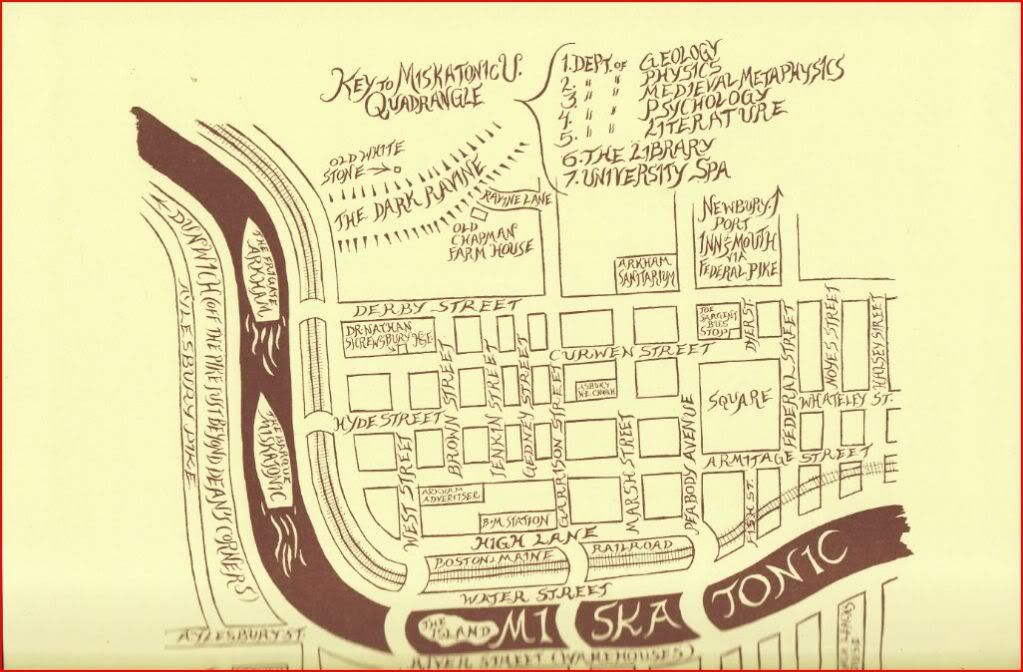 KEY TO MISKATONIC U.
QUADRANGLE
1. DEPT. OF GEOLOGY
2. " " PHYSICS
3 " " MEDIEVAL METAPHYSICS
4. " " PSYCHOLOGY
5. " " LITERATURE
6. THE LIBRARY
7. UNIVERSITY SPA
OLD WHITE
STONE
THE DARK RAVINE
RAVINE LANE
OLD
CHAPMAN
FARM HOUSE
NEWBURY-
PORT
INNSMOUTH
VIA
FEDERAL PIKE
ARKHAM
SANITARIUM
THE FRIGATE
ARKHAM
DUNWICH (OFF THE PIKE JUST BEYOND DEAN'S CORNERS)
AYLESBURY PIKE
DERBY STREET
DR. NATHAN
SHREWSBURY HSE
JOE
SARGENT
BUS
STOP
DYER ST.
FEDERAL STREET
NOYES STREET
HALSEY STREET
CURWEN STREET
ASBURY
M.E. CHURCH
SQUARE
WHATELEY ST.
HYDE STREET
WEST STREET
BROWN STREET
JENKIN STREET
GEDNEY STREET
GARRISON STREET
MARSH STREET
PEABODY AVENUE
ARMITAGE STREET
FISH ST.
THE BARQUE
MISKATONIC
ARKHAM
ADVERTISER
B·M. STATION
HIGH LANE
BOSTON, MAINE
RAILROAD
WATER STREET
THE
ISLAND
MISKATONIC
AYLESBURY ST.
RIVER STREET (WAREHOUSES)